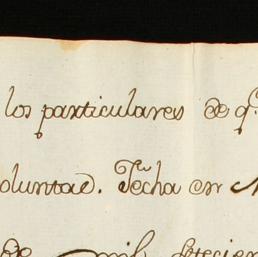 los particulares de q.
oluntad. Fecha en
de mil setecien